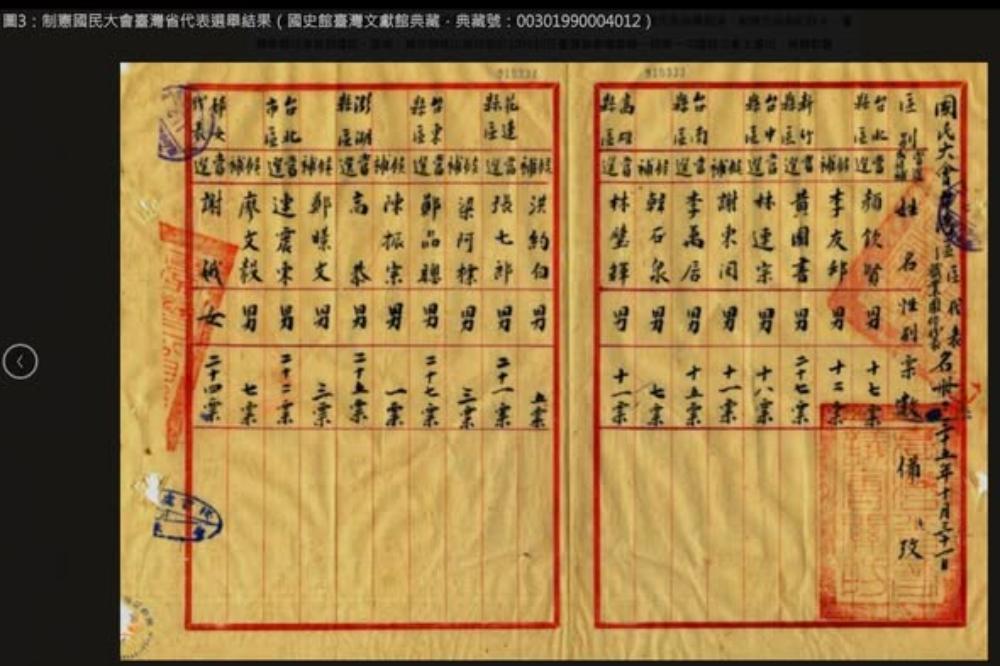 圖3：制憲國民大會臺灣省代表選舉結果（國史館臺灣文獻館典藏，典藏號：00301990004012）
國民大會區代表名冊 三十五年十月三十一日
區別 姓名 性別 票數 備攷
台北縣區 當選 顏欽賢 男 十七票
候補 李友邦 男 十二票
新竹縣區 當選 黃國書 男 二十七票
台中縣區 當選 林連宗 男 十八票
候補 謝東閔 男 十一票
台南縣區 當選 李萬居 男 十五票
候補 韓石泉 男 七票
高雄縣區 當選 林璧輝 男 十一票
候補 洪約白 男 五票
花蓮縣區 當選 張七郎 男 二十一票
候補 梁阿標 男 三票
台東縣區 當選 鄭品聰 男 二十七票
候補 陳振宗 男 一票
澎湖縣區 當選 高恭 男 二十五票
候補 鄭文 男 三票
台北市區 當選 連震東 男 二十二票
候補 廖文毅 男 七票
婦女代表 當選 謝娥 女 二十四票